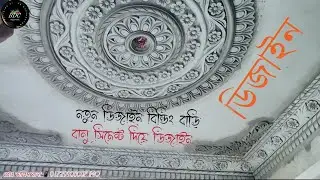 ডিজাইন
নতুন ডিজাইন বিডিং বাড়ি
বালু সিমেন্ট দিয়ে ডিজাইন